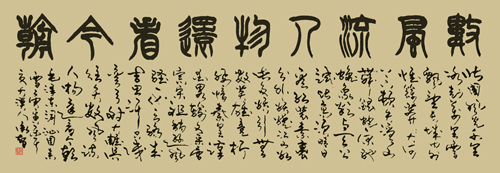 數風流人物還看今朝
北國風光千里
冰封萬里雪
飄望長城內外
惟餘莽莽大河
上下頓失滔滔山
舞銀蛇原馳
蠟象欲與天公
試比高須晴日
看紅裝素裹
分外妖嬈江山如
此多嬌引無
數英雄競折
腰惜秦皇漢
武略輸文采唐
宗宋祖稍遜風
騷一代天驕成
吉思汗只識
彎弓射大雕俱
往矣數風流
人物還看今朝
毛澤東詞沁園春
雪